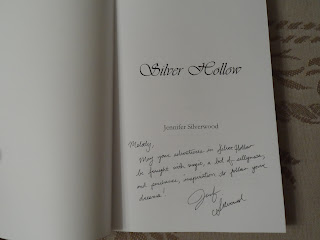 Silver Hollow
Jennifer Silverwood
Melody,
May your adventures in Silver Hollow
be fraught with magic, a bit of
and perchance, inspiration to follow your
dreams!